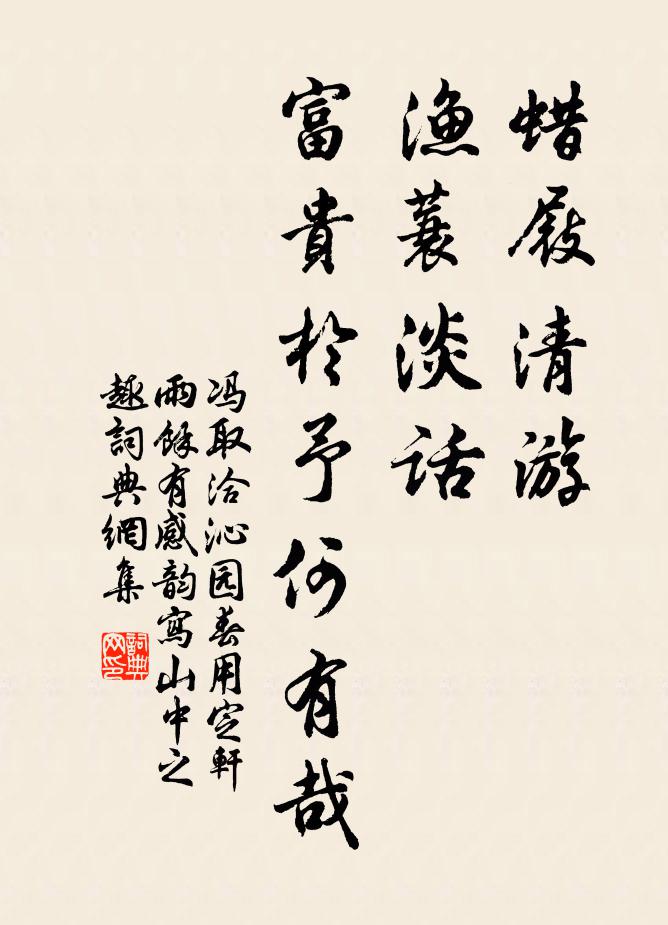 蜡屐清游
漁蓑淡话
富貴於予何有哉
冯取洽沁园春用定軒
雨餘有感韵寫山中之
趣詞典網集
詞典
网印